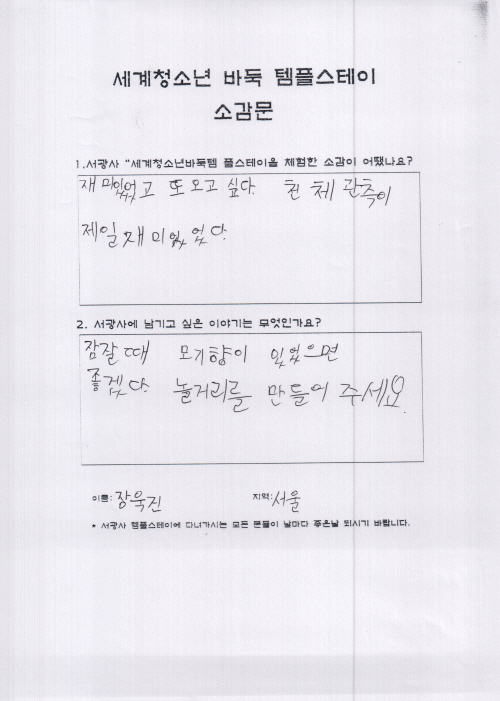 세계청소년 바둑 템플스테이
소감문
1.서광사 "세계청소년바둑템 플스테이을 체험한 소감이 어땠나요?
재미있었고 또 오고 싶다. 천체관측이
제일재미있었다.
2. 서광사에 남기고 싶은 이야기는 무엇인가요?
잠잘때 모기향이 있었으면
좋겠다. 놀거리를 만들어 주세요.
이름: 장욱진 지역: 서울
* 서광사 템플스테이에 다녀가시는 모든 분들이 날마다 좋은날 되시기 바랍니다.